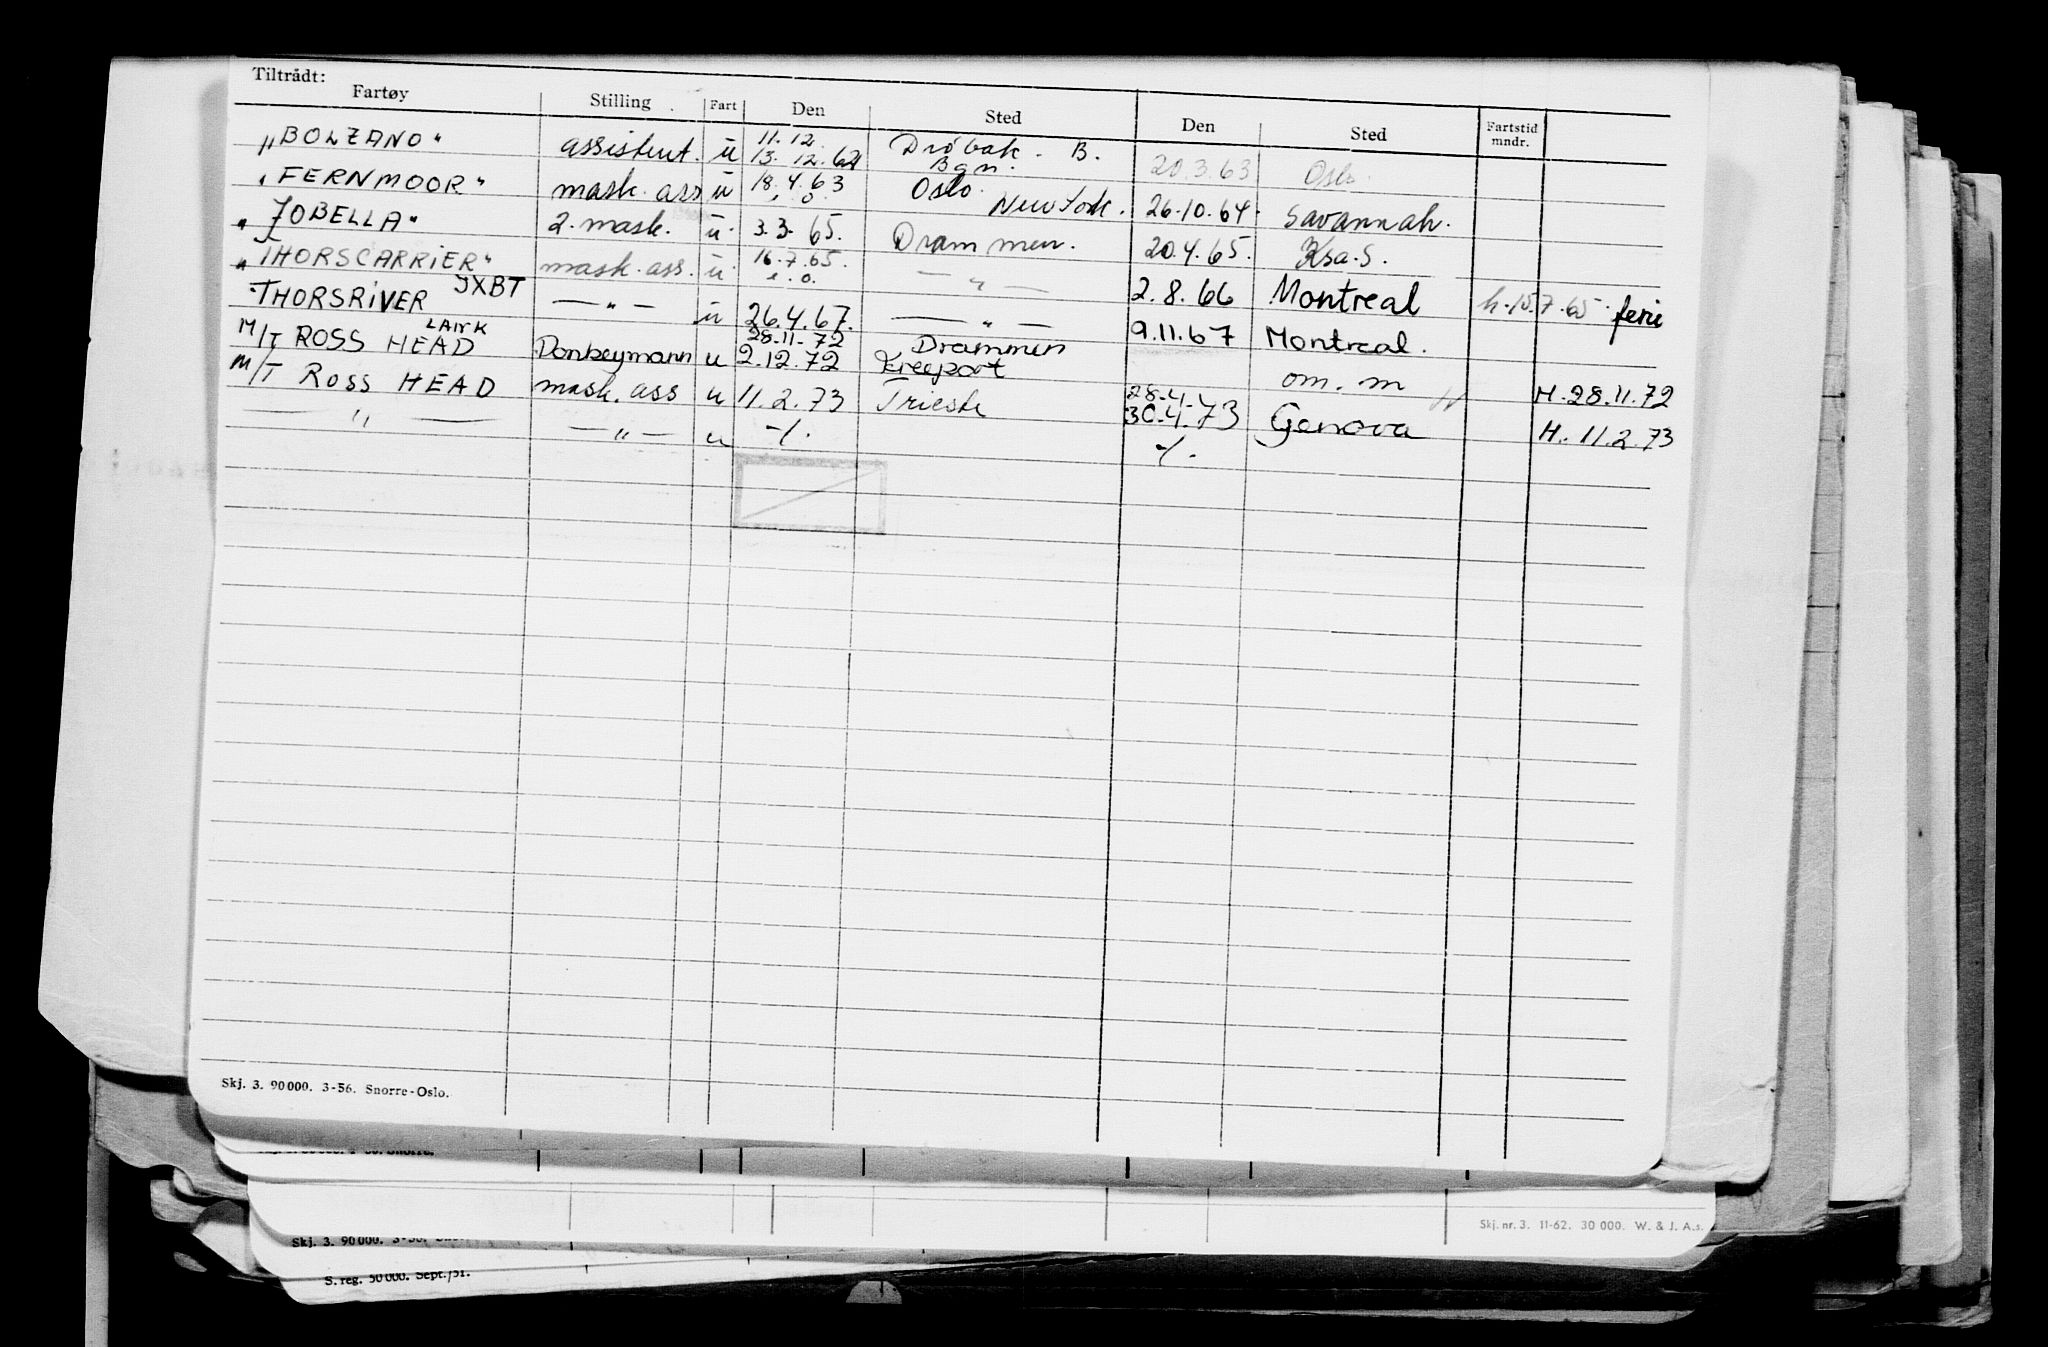 Tiltrådt:
Fartøy Stilling Fart Den Sted Den Sted Fartstid mndr.
"BOLZANO" assistent. ü 11.12. 13.12.62 Drøbak - B. Bgn. 20.3.63 Oslo
"FERNMOOR" mask. ass ü 18.4.63 Oslo. New York. 26.10.64. Savannah.
"JOBELLA" 2. mask. ü 3.3.65. Drammen. 20.4.65. Ksa.S.
"THORSCARRIER" mask. ass. ü 16.7.65. e.o. — " — 2.8.66 Montreal h. 15.7.65. ferie
JXBT
THORSRIVER — " — ü 26.4.67. — " — 9.11.67 Montreal.
LAHK
M/T ROSS HEAD Donkeymann u 28.11.72 2.12.72 Drammen Freeport om. m H. 28.11.72
M/T ROSS HEAD mask. ass u 11.2.73 Trieste 28.4. 30.4.73 Genova H. 11.2.73
— " — — " — u -/. -/.
Skj. 3. 90000. 3-56. Snorre-Oslo.
Skj. nr. 3. 11-62. 30 000. W. & J. A.s.
Skj. 3. 90000. 3-56.
S. reg. 50000. Sept./51.